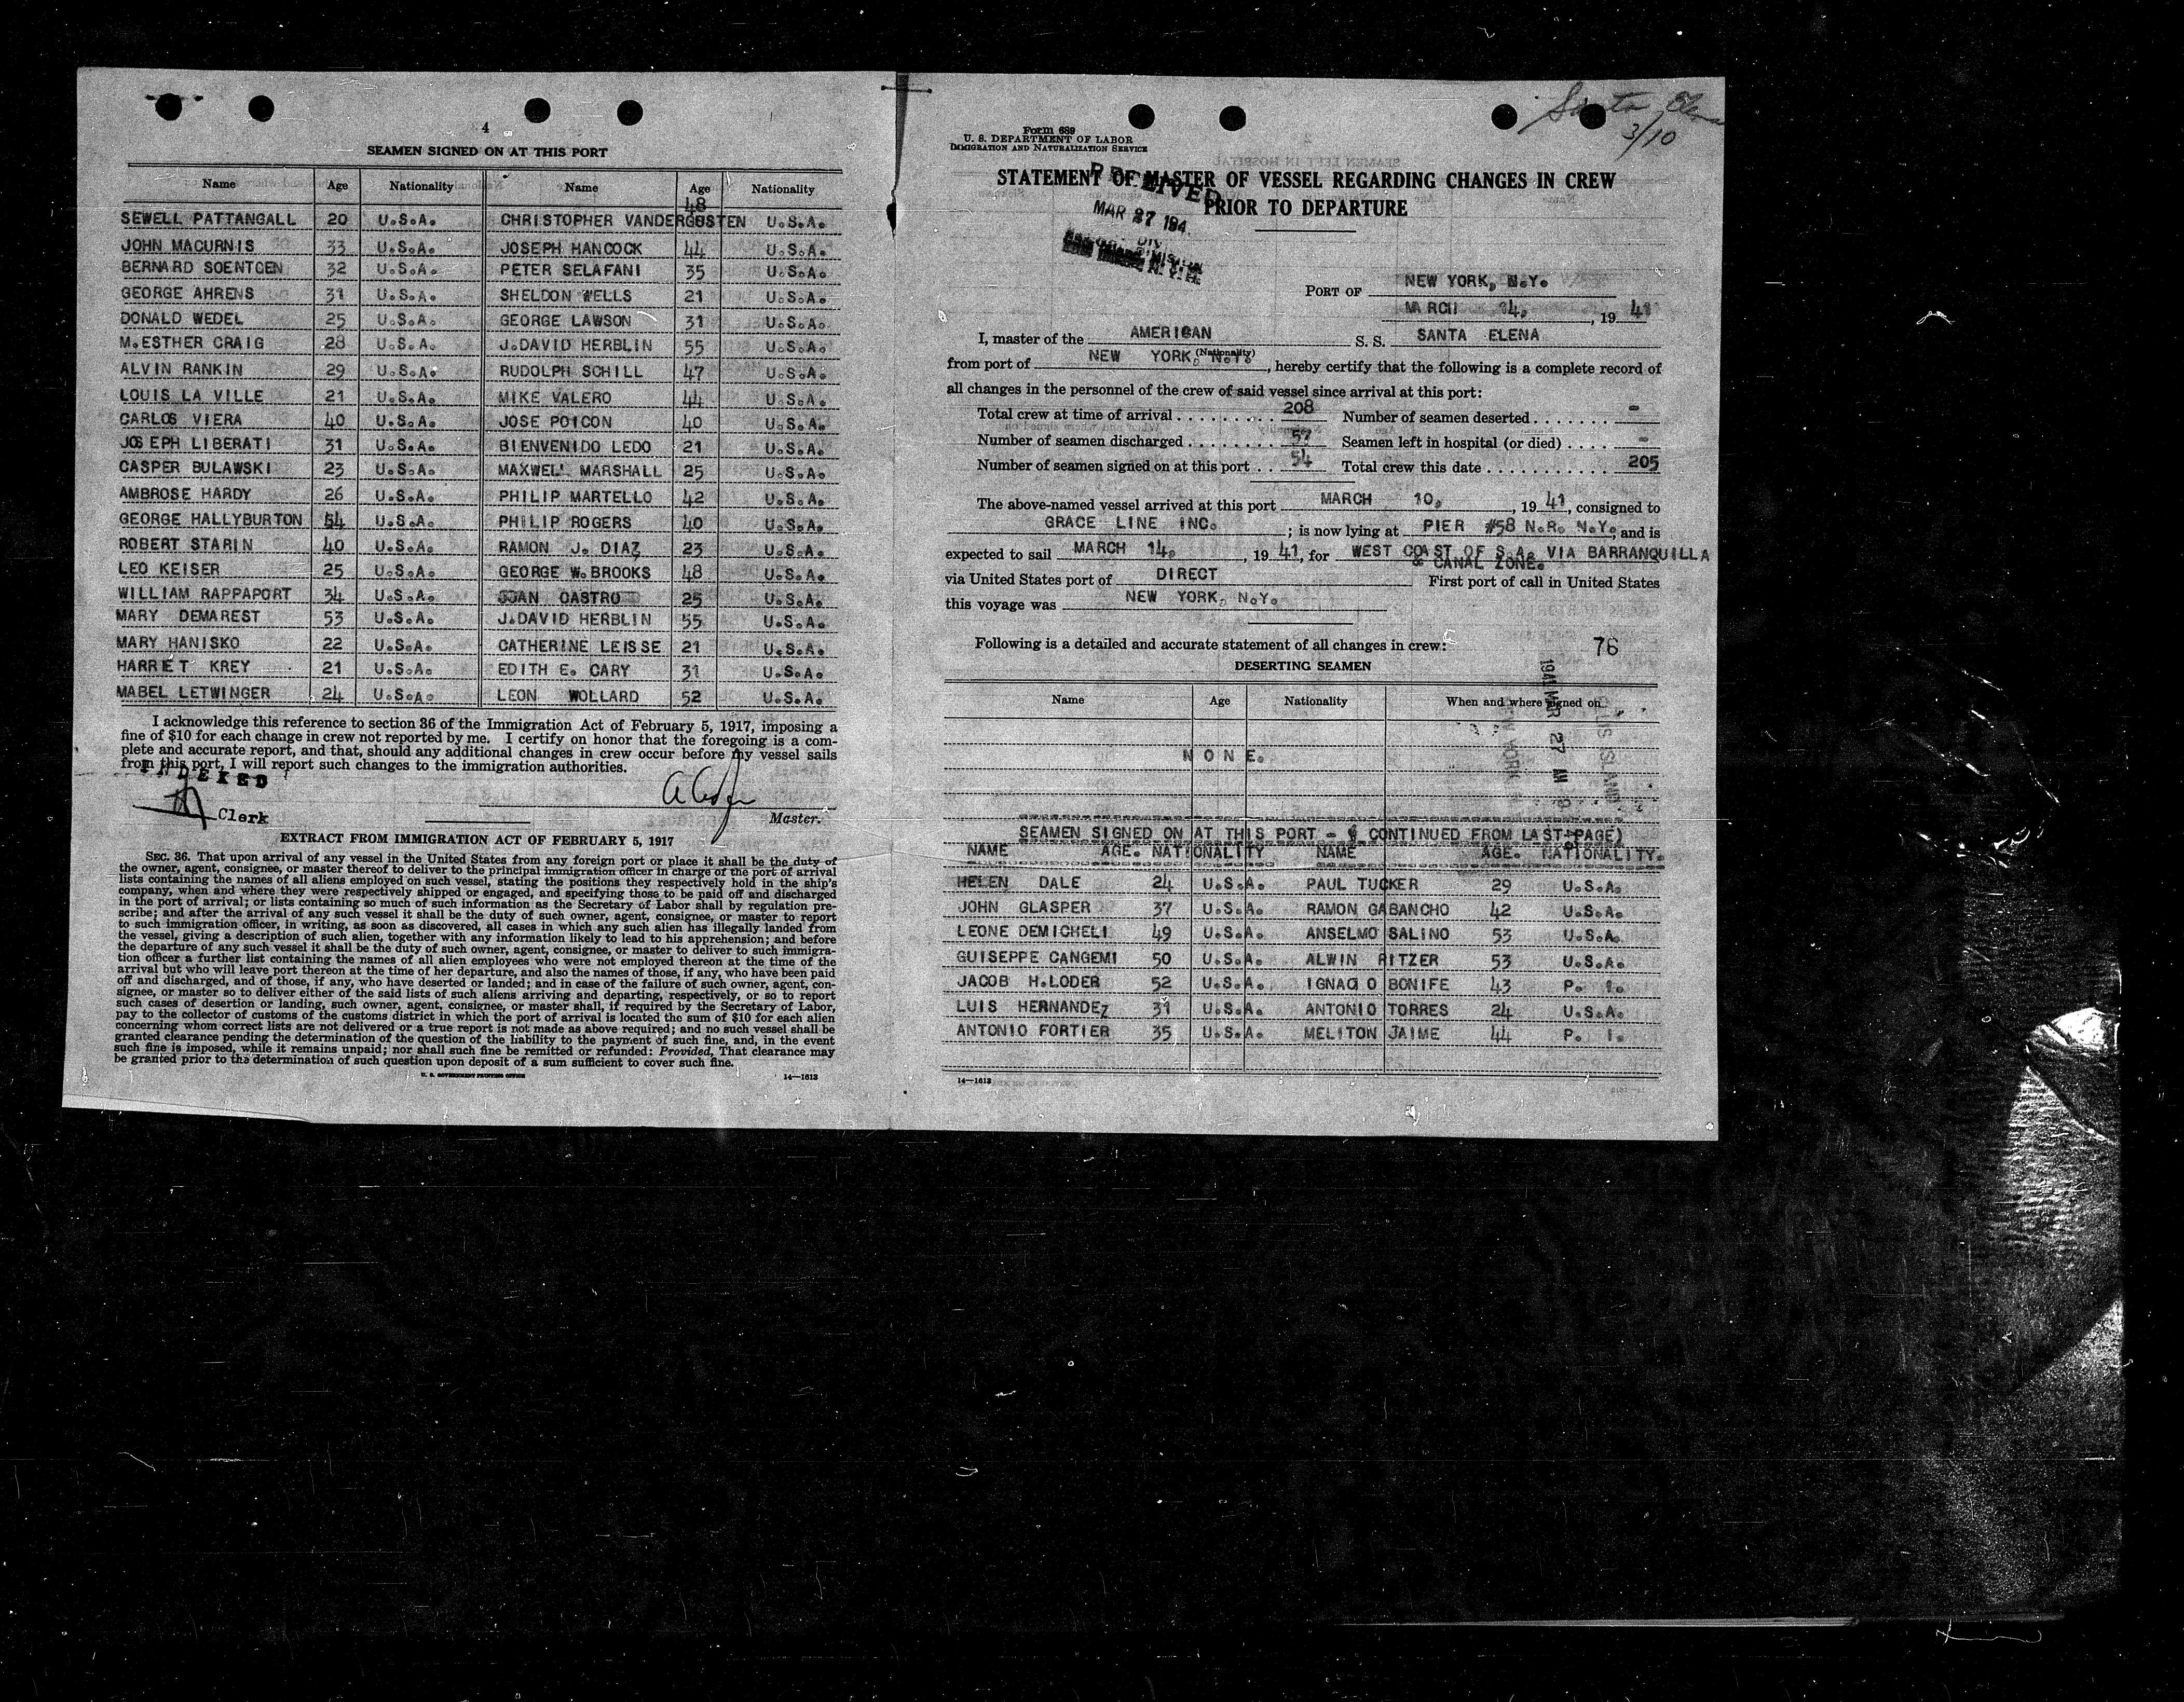 4
SEAMEN SIGNED ON AT THIS PORT
Name Age Nationality Name Age Nationality
SEWELL PATTANGALL 20 U.S.A. CHRISTOPHER VANDERGUSTEN 48 U.S.A.
JOHN MACURNIS 33 U.S.A. JOSEPH HANCOCK 44 U.S.A.
BERNARD SOENTGEN 32 U.S.A. PETER SELAFANI 35 U.S.A.
GEORGE AHRENS 31 U.S.A. SHELDON WELLS 21 U.S.A.
DONALD WEDEL 25 U.S.A. GEORGE LAWSON 31 U.S.A.
M.ESTHER CRAIG 28 U.S.A. J.DAVID HERBLIN 55 U.S.A.
ALVIN RANKIN 29 U.S.A. RUDOLPH SCHILL 47 U.S.A.
LOUIS LA VILLE 21 U.S.A. MIKE VALERO 44 U.S.A.
CARLOS VIERA 40 U.S.A. JOSE POICON 40 U.S.A.
JOSEPH LIBERATI 31 U.S.A. BIENVENIDO LEDO 21 U.S.A.
CASPER BULAWSKI 23 U.S.A. MAXWELL MARSHALL 25 U.S.A.
AMBROSE HARDY 26 U.S.A. PHILIP MARTELLO 42 U.S.A.
GEORGE HALLYBURTON 54 U.S.A. PHILIP ROGERS 40 U.S.A.
ROBERT STARIN 40 U.S.A. RAMON J. DIAZ 23 U.S.A.
LEO KEISER 25 U.S.A. GEORGE W.BROOKS 48 U.S.A.
WILLIAM RAPPAPORT 34 U.S.A. JUAN CASTRO 25 U.S.A.
MARY DEMAREST 53 U.S.A. J.DAVID HERBLIN 55 U.S.A.
MARY HANISKO 22 U.S.A. CATHERINE LEISSE 21 U.S.A.
HARRIET KREY 21 U.S.A. EDITH E. CARY 31 U.S.A.
MABEL LETWINGER 24 U.S.A. LEON WOLLARD 52 U.S.A.
I acknowledge this reference to section 36 of the Immigration Act of February 5, 1917, imposing a
fine of $10 for each change in crew not reported by me. I certify on honor that the foregoing is a com-
plete and accurate report, and that, should any additional changes in crew occur before my vessel sails
from this port, I will report such changes to the immigration authorities.
INDEXED
Clerk Master.
EXTRACT FROM IMMIGRATION ACT OF FEBRUARY 5, 1917
SEC. 36. That upon arrival of any vessel in the United States from any foreign port or place it shall be the duty of
the owner, agent, consignee, or master thereof to deliver to the principal immigration officer in charge of the port of arrival
lists containing the names of all aliens employed on such vessel, stating the positions they respectively hold in the ship's
company, when and where they were respectively shipped or engaged, and specifying those to be paid off and discharged
in the port of arrival; or lists containing so much of such information as the Secretary of Labor shall by regulation pre-
scribe; and after the arrival of any such vessel it shall be the duty of such owner, agent, consignee, or master to report
to such immigration officer, in writing, as soon as discovered, all cases in which any such alien has illegally landed from
the vessel, giving a description of such alien, together with any information likely to lead to his apprehension; and before
the departure of any such vessel it shall be the duty of such owner, agent, consignee, or master to deliver to such immigra-
tion officer a further list containing the names of all alien employees who were not employed thereon at the time of the
arrival but who will leave port thereon at the time of her departure, and also the names of those, if any, who have been paid
off and discharged, and of those, if any, who have deserted or landed; and in case of the failure of such owner, agent, con-
signee, or master so to deliver either of the said lists of such aliens arriving and departing, respectively, or so to report
such cases of desertion or landing, such owner, agent, consignee, or master shall, if required by the Secretary of Labor,
pay to the collector of customs of the customs district in which the port of arrival is located the sum of $10 for each alien
concerning whom correct lists are not delivered or a true report is not made as above required; and no such vessel shall be
granted clearance pending the determination of the question of the liability to the payment of such fine, and, in the event
such fine is imposed, while it remains unpaid; nor shall such fine be remitted or refunded: Provided, That clearance may
be granted prior to the determination of such question upon deposit of a sum sufficient to cover such fine.
U. S. GOVERNMENT PRINTING OFFICE 14—1613
Santa Elena
3/10
Form 689
U. S. DEPARTMENT OF LABOR
IMMIGRATION AND NATURALIZATION SERVICE
STATEMENT OF MASTER OF VESSEL REGARDING CHANGES IN CREW
PRIOR TO DEPARTURE
RECEIVED
MAR 27 194
PORT OF NEW YORK, N.Y.
MARCH 14, 1941
I, master of the AMERICAN S. S. SANTA ELENA
(Nationality)
from port of NEW YORK, N.Y., hereby certify that the following is a complete record of
all changes in the personnel of the crew of said vessel since arrival at this port:
Total crew at time of arrival 208 Number of seamen deserted -
Number of seamen discharged 57 Seamen left in hospital (or died) -
Number of seamen signed on at this port 54 Total crew this date 205
The above-named vessel arrived at this port MARCH 10, 1941, consigned to
GRACE LINE INC. ; is now lying at PIER #58 N.R. N.Y., and is
expected to sail MARCH 14, 1941, for WEST COAST OF S.A. VIA BARRANQUILLA
& CANAL ZONE.
via United States port of DIRECT First port of call in United States
this voyage was NEW YORK, N.Y.
Following is a detailed and accurate statement of all changes in crew:
76
DESERTING SEAMEN
Name Age Nationality When and where signed on
1941 MAR 27 AM
ELLIS ISLAND
NEW YORK
NONE.
SEAMEN SIGNED ON AT THIS PORT - ( CONTINUED FROM LAST PAGE)
NAME AGE. NATIONALITY NAME AGE. NATIONALITY.
HELEN DALE 24 U.S.A. PAUL TUCKER 29 U.S.A.
JOHN GLASPER 37 U.S.A. RAMON GABANCHO 42 U.S.A.
LEONE DEMICHELI 49 U.S.A. ANSELMO SALINO 53 U.S.A.
GUISEPPE CANGEMI 50 U.S.A. ALWIN RITZER 53 U.S.A.
JACOB H.LODER 52 U.S.A. IGNACIO BONIFE 43 P. I.
LUIS HERNANDEZ 31 U.S.A. ANTONIO TORRES 24 U.S.A.
ANTONIO FORTIER 35 U.S.A. MELITON JAIME 44 P. I.
14—1613